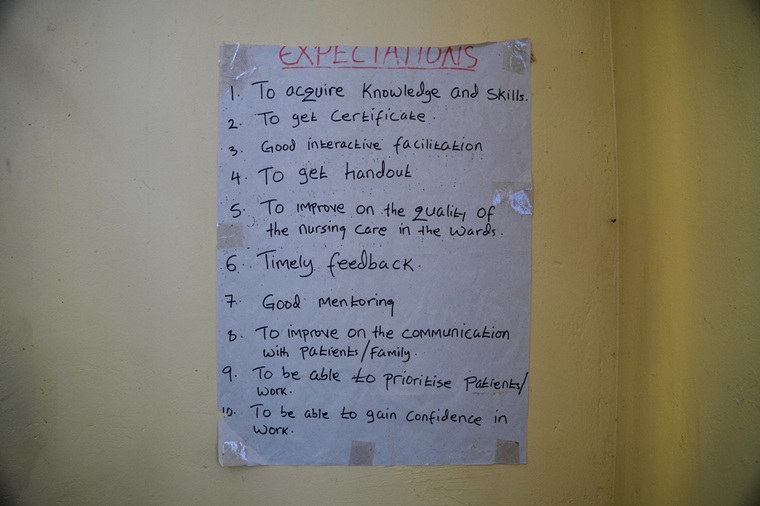 EXPECTATIONS
1. To acquire Knowledge and Skills.
2. To get Certificate.
3. Good interactive facilitation
4. To get handout
5. To improve on the quality of
the nursing care in the wards.
6. Timely feedback.
7. Good mentoring
8. To improve on the communication
with patients/family.
9. To be able to prioritise patients/
work.
10. To be able to gain confidence in
work.